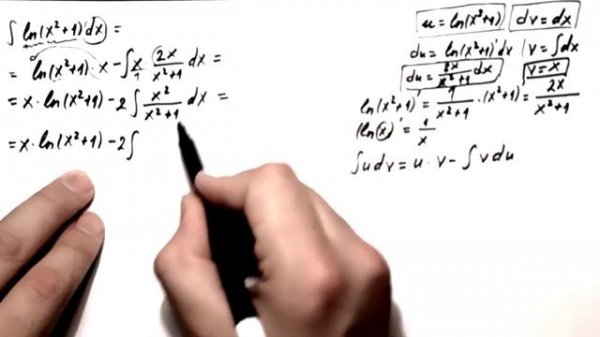 ∫ ln(x²+1) dx =
= ln(x²+1) · x - ∫ x/1 · 2x/x²+1 dx =
= x · ln(x²+1) - 2∫ x²/x²+1 dx =
= x · ln(x²+1) - 2∫
u = ln(x²+1) dv = dx
du = ln(x²+1)' dx v = ∫dx
du = 2x/x²+1 dx v = x
ln(x²+1)' = 1/x²+1 · (x²+1)' = 2x/x²+1
(ln(x))' = 1/x
∫udv = u · v - ∫vdu